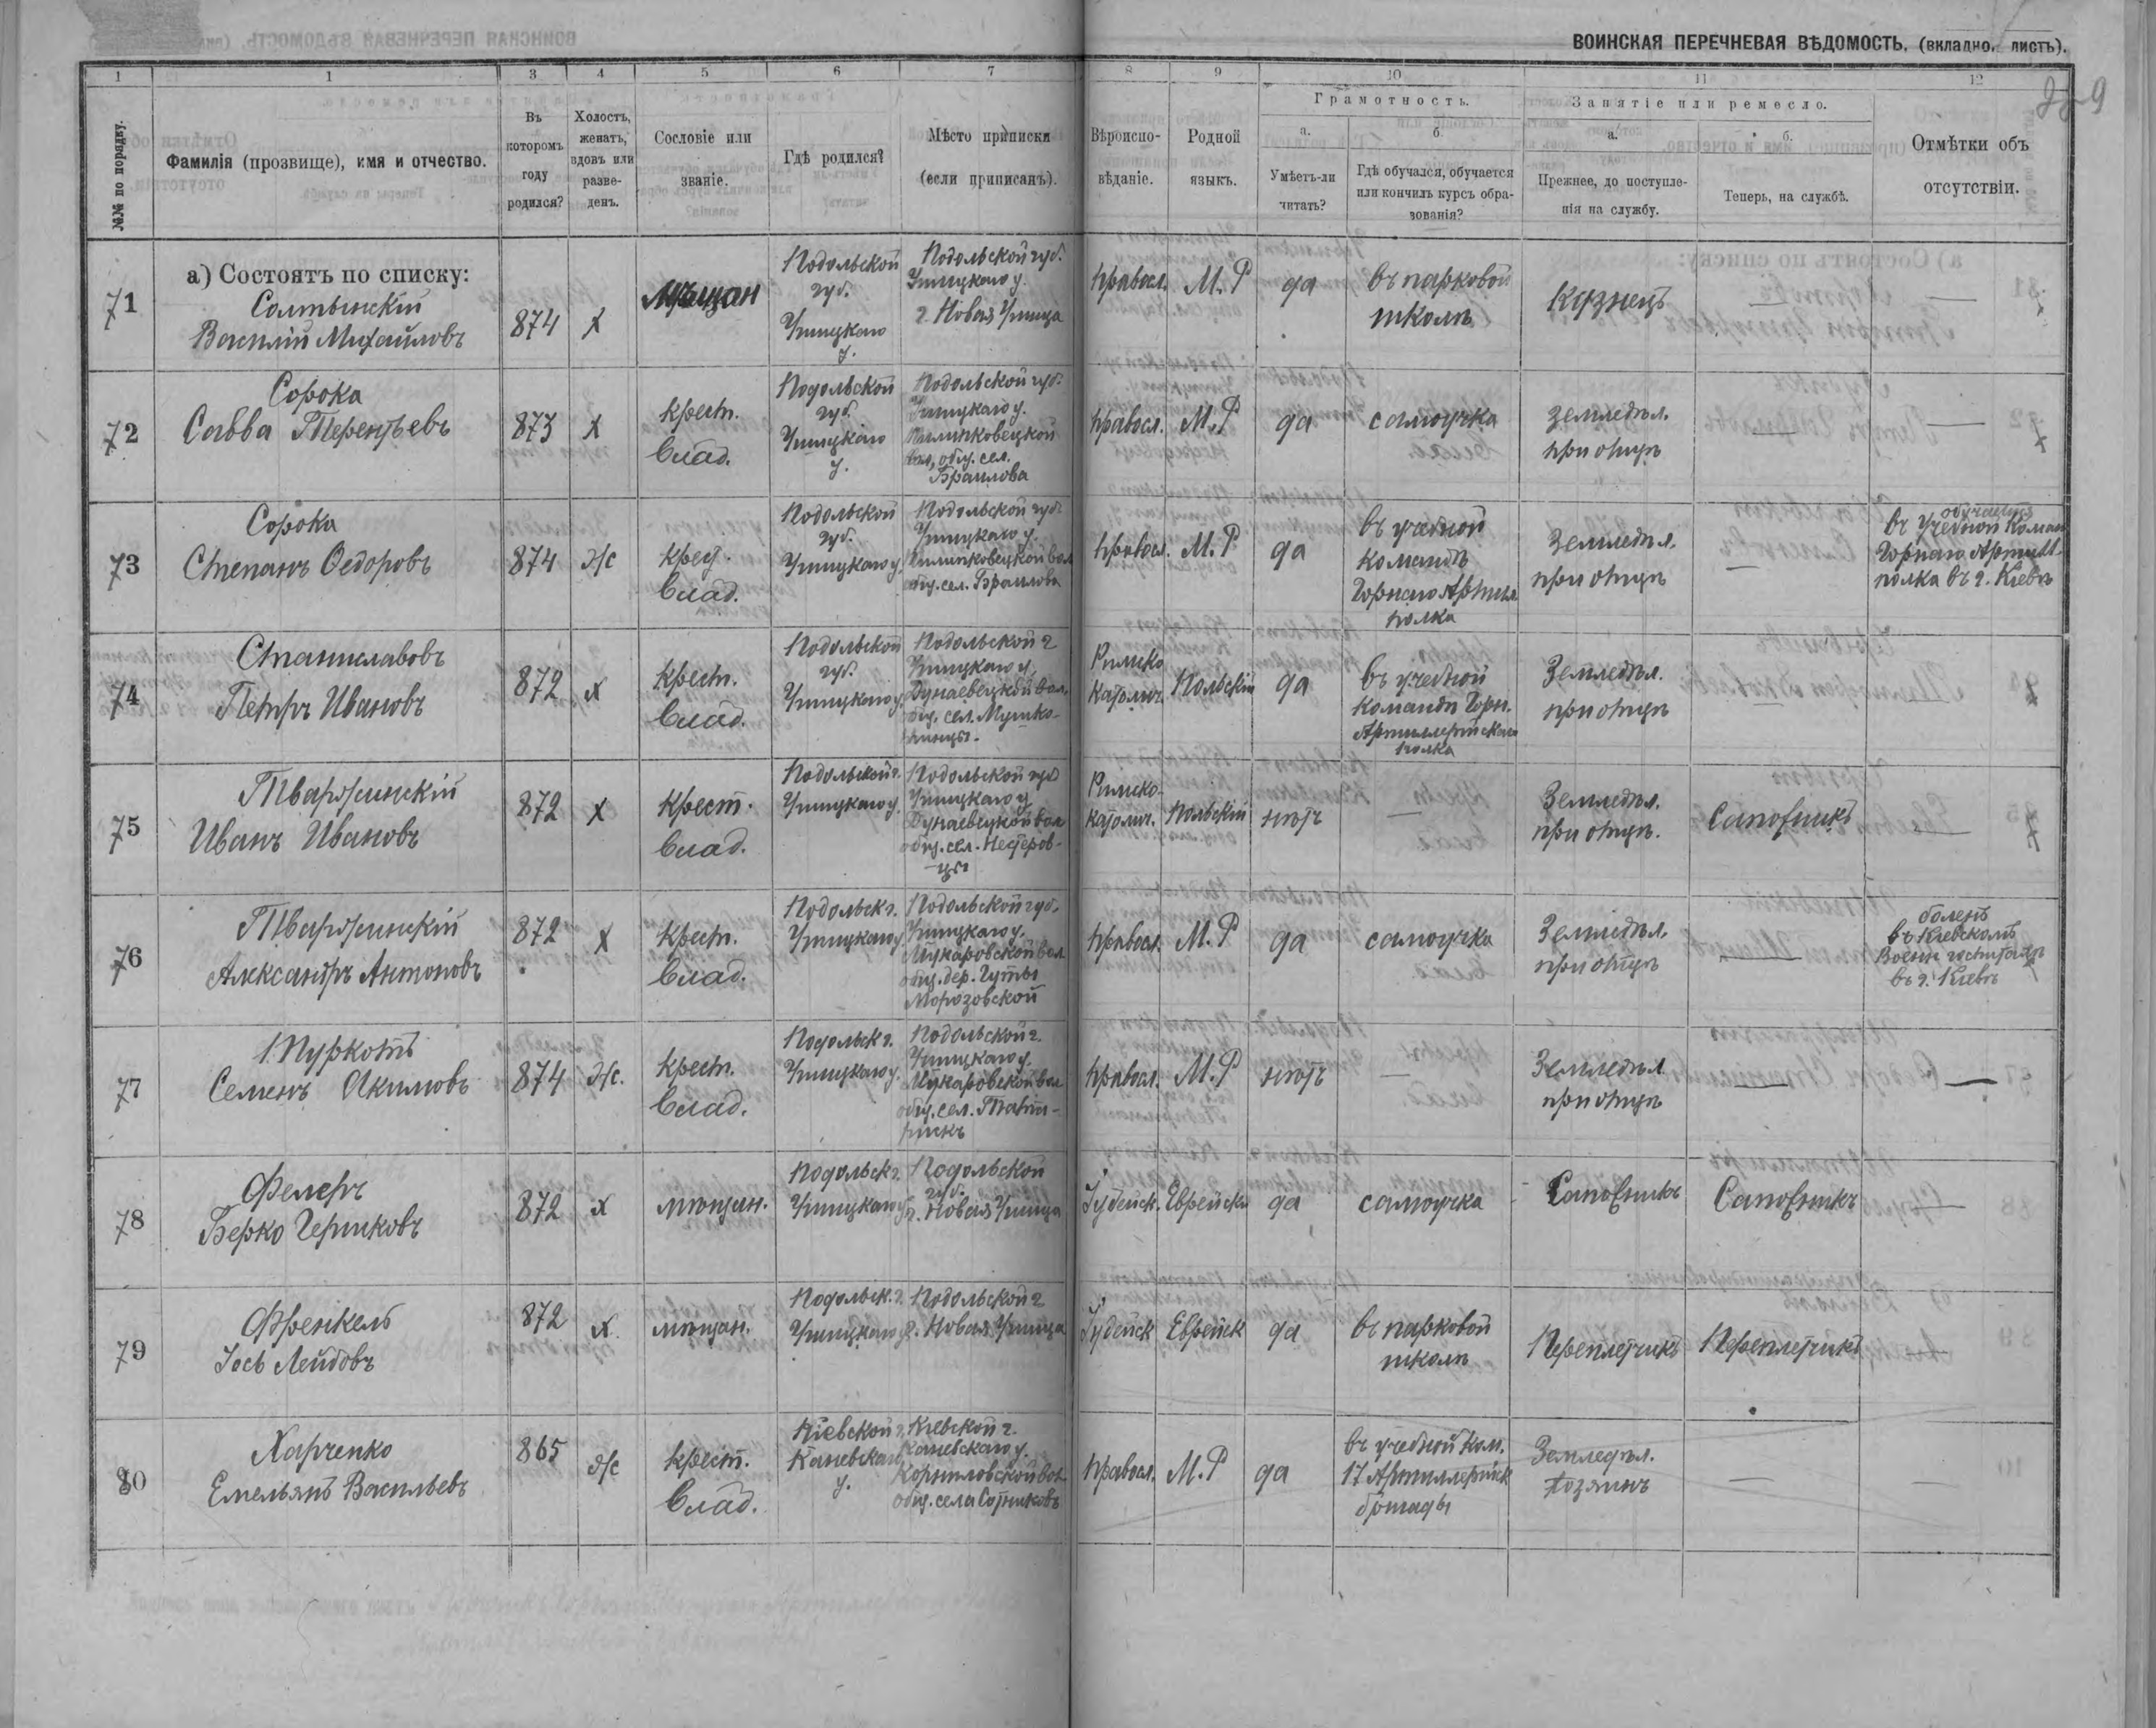 ВОИНСКАЯ ПЕРЕЧНЕВАЯ ВѢДОМОСТЬ. (вкладно. листъ).
1 1 3 4 5 6 7 8 9 10 11 12
№№ по порядку.
Фамилія (прозвище), имя и отчество.
Въ которомъ году родился?
Холостъ, женатъ, вдовъ или разве-денъ.
Сословіе или званіе.
Гдѣ родился?
Мѣсто приписки (если приписанъ).
Вѣроиспо-вѣданіе.
Родной языкъ.
Грамотность.
а. Умѣетъ-ли читать?
б. Гдѣ обучался, обучается или кончилъ курсъ обра-зованія?
Занятіе или ремесло.
а. Прежнее, до поступле-нія на службу.
б. Теперь, на службѣ.
Отмѣтки объ отсутствіи.
а) Состоятъ по списку:
71 Солтынскій Василій Михайловъ 874 х Мѣщан Подольской губ. Ушицкаго у. Подольской губ. Ушицкаго у. г. Новая Ушица правосл. М.Р да въ парковой школѣ Кузнецъ —
72 Сорока Савва Терентьевъ 873 х крест. влад. Подольской губ. Ушицкаго у. Подольской губ. Ушицкаго у. вол, общ. сел. Браилова правосл. М.Р да самоучка земледѣл. при отцѣ — —
73 Сорока Степанъ Федоровъ 874 ж крест. влад. Подольской губ. Ушицкаго у. Подольской губ. Ушицкаго у. вол общ. сел. Браилова правосл. М.Р да въ учебной командѣ Горнаго Артил. полка Земледѣл. при отцѣ — обучается въ учебной коман Горнаго Артилл. полка въ г. Кіевѣ
74 Станиславовъ Петръ Ивановъ 872 х крест. влад. Подольской губ. Ушицкаго у. Подольской г Ушицкаго у. Дунаевецкой вол. общ. сел. Римско католич. Польскій да въ учебной команды Горн. Артиллерійскаго полка Земледѣл. при отцѣ — —
75 Тваржинскій Иванъ Ивановъ 872 х крест. влад. Подольской г. Ушицкаго у. Подольской губ Ушицкаго у Дунаевецкой вол общ. сел. Нестеров-цы Римско-католич. Польскій нѣтъ — Земледѣл. при отцѣ. Сапожникъ —
76 Тваржинскій Александръ Антоновъ 872 х крест. влад. Подольск г. Ушицкаго у. Подольской губ. Ушицкаго у. вол общ. дер. Гуты Морозовской правосл. М.Р да самоучка Земледѣл. при отцѣ — боленъ въ Кіевскомъ Военн госпиталѣ въ г. Кіевѣ
77 Туркотъ Семенъ Акимовъ 874 ж. крест. влад. Подольск г. Ушицкаго у. Подольской г. Ушицкаго у. вол общ. сел. правосл. М.Р нѣтъ — Земледѣл при отцѣ — —
78 Фелеръ Берко Гершковъ 872 х мѣщан. Подольск г. Ушицкаго у. Подольской губ. г. Новая Ушица Іудейск. Еврейскій да самоучка Сапожникъ Сапожникъ —
79 Френкель Іось Лейбовъ 872 х. мѣщан. Подольск. г. Ушицкаго у. Подольской г г. Новая Ушица Іудейск Еврейск да въ парковой школѣ Переплетчикъ Переплетчикъ —
80 Харченко Емельянъ Васильевъ 865 ж крест. влад. Кіевской г. Каневскаго у. Кіевской г. Каневскаго у. Корниловской вол общ. села Сотниковъ правосл. М.Р да въ учебной ком. 17 Артиллерійск бригады Земледѣл. хозяинъ — —